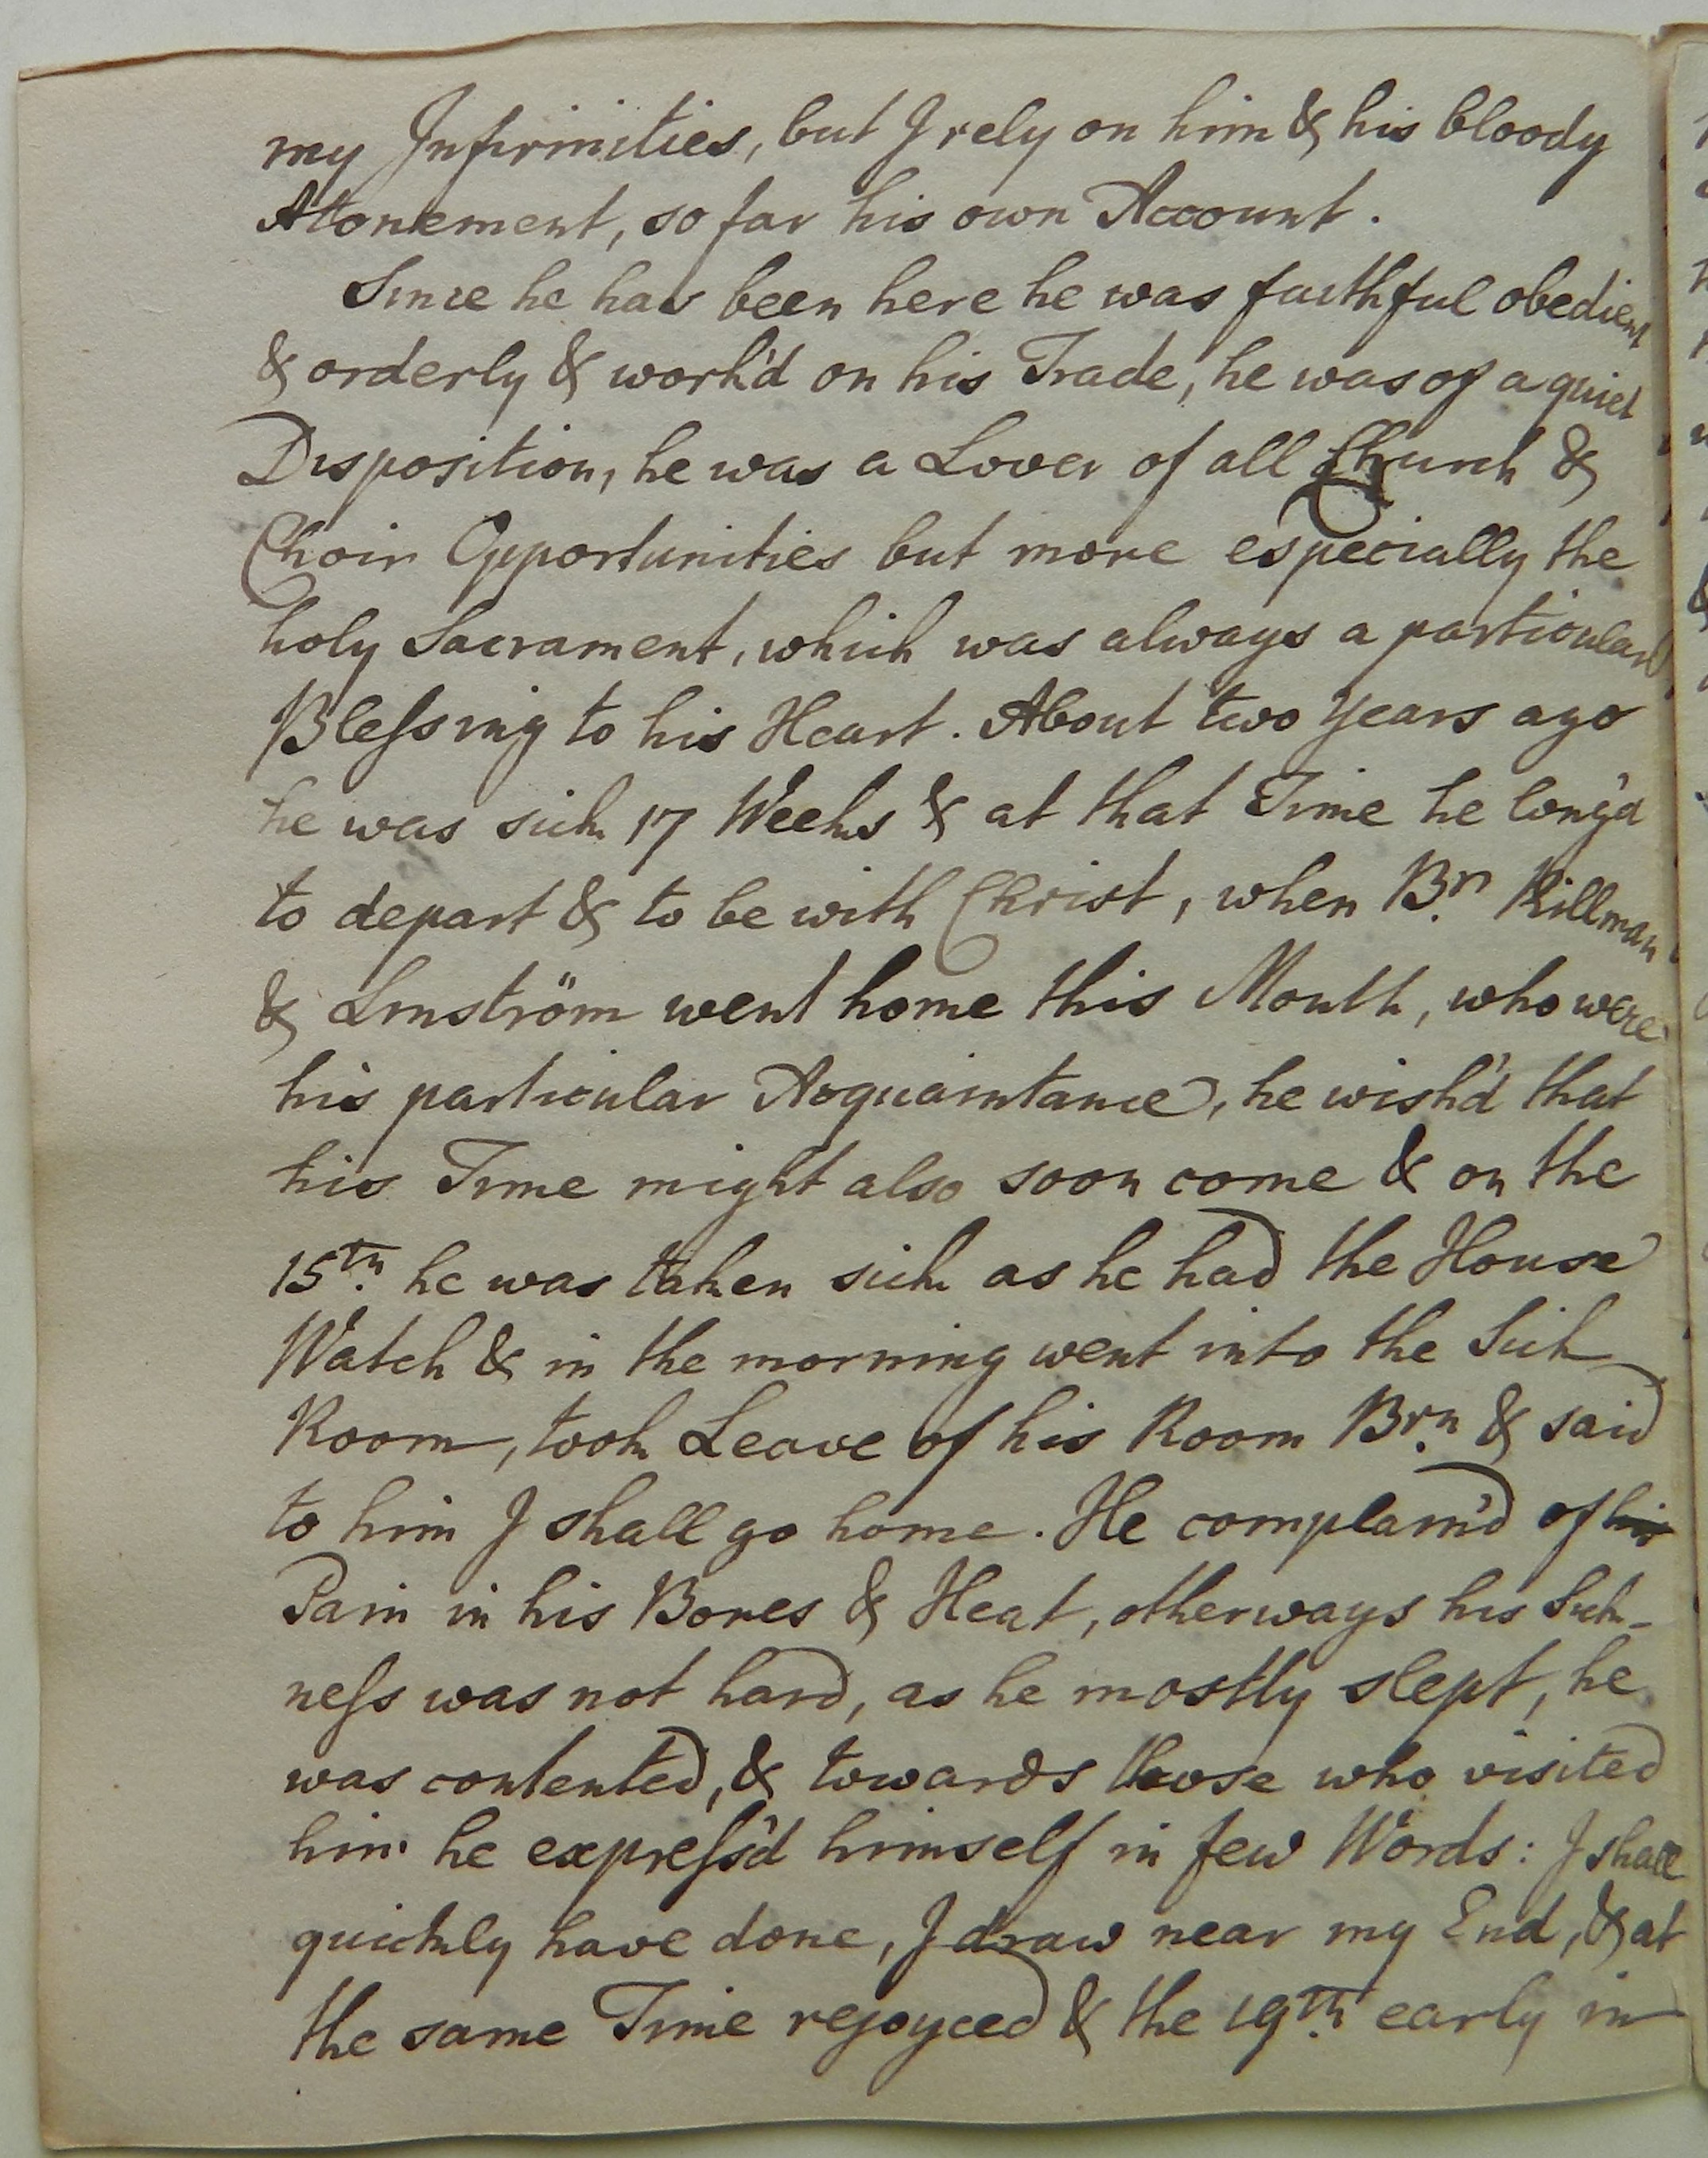 my Infirmities, but I rely on him & his bloody
Atonement, so far his own Account.
Since he has been here he was faithful obedient
& orderly & work'd on his Trade, he was of a quiet
Disposition, he was a Lover of all Church &
Choir Opportunities but more especially the
holy Sacrament, which was always a particular
Bleſsing to his Heart. About two Years ago
he was sick 17 Weeks & at that Time he long'd
to depart & to be with Christ, when Brn Killman
& Linström went home this Month, who were
his particular Acquaintance, he wish'd that
his Time might also soon come & on the
15th. he was taken sick as he had the House
Watch & in the morning went into the Sick
Room, took Leave of his Room Brn. & said
to him I shall go home. He complain'd of his
Pain in his Bones & Heat, otherways his Sick-
neſs was not hard, as he mostly slept, he
was contented, & towards those who visited
him he expreſs'd himself in few Words: I shall
quickly have done, I draw near my End, & at
the same Time rejoyced & the 19th. early in